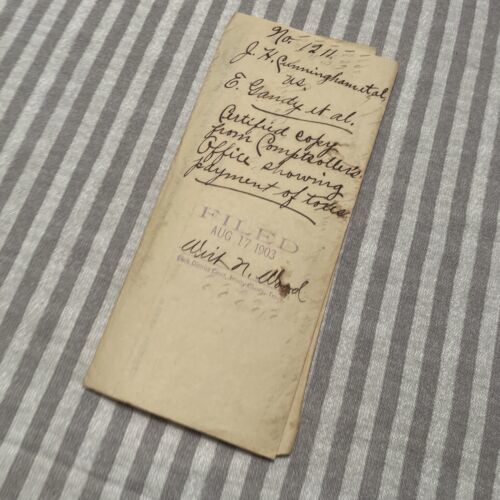 No. 1211.
J. H. Cunningham et al,
vs.
E. Gandy et al.
Certified copy
from Comptroller's
Office, showing
payment of taxes
FILED
AUG 17 1903
Wirt N. Wood
Clerk District Court,